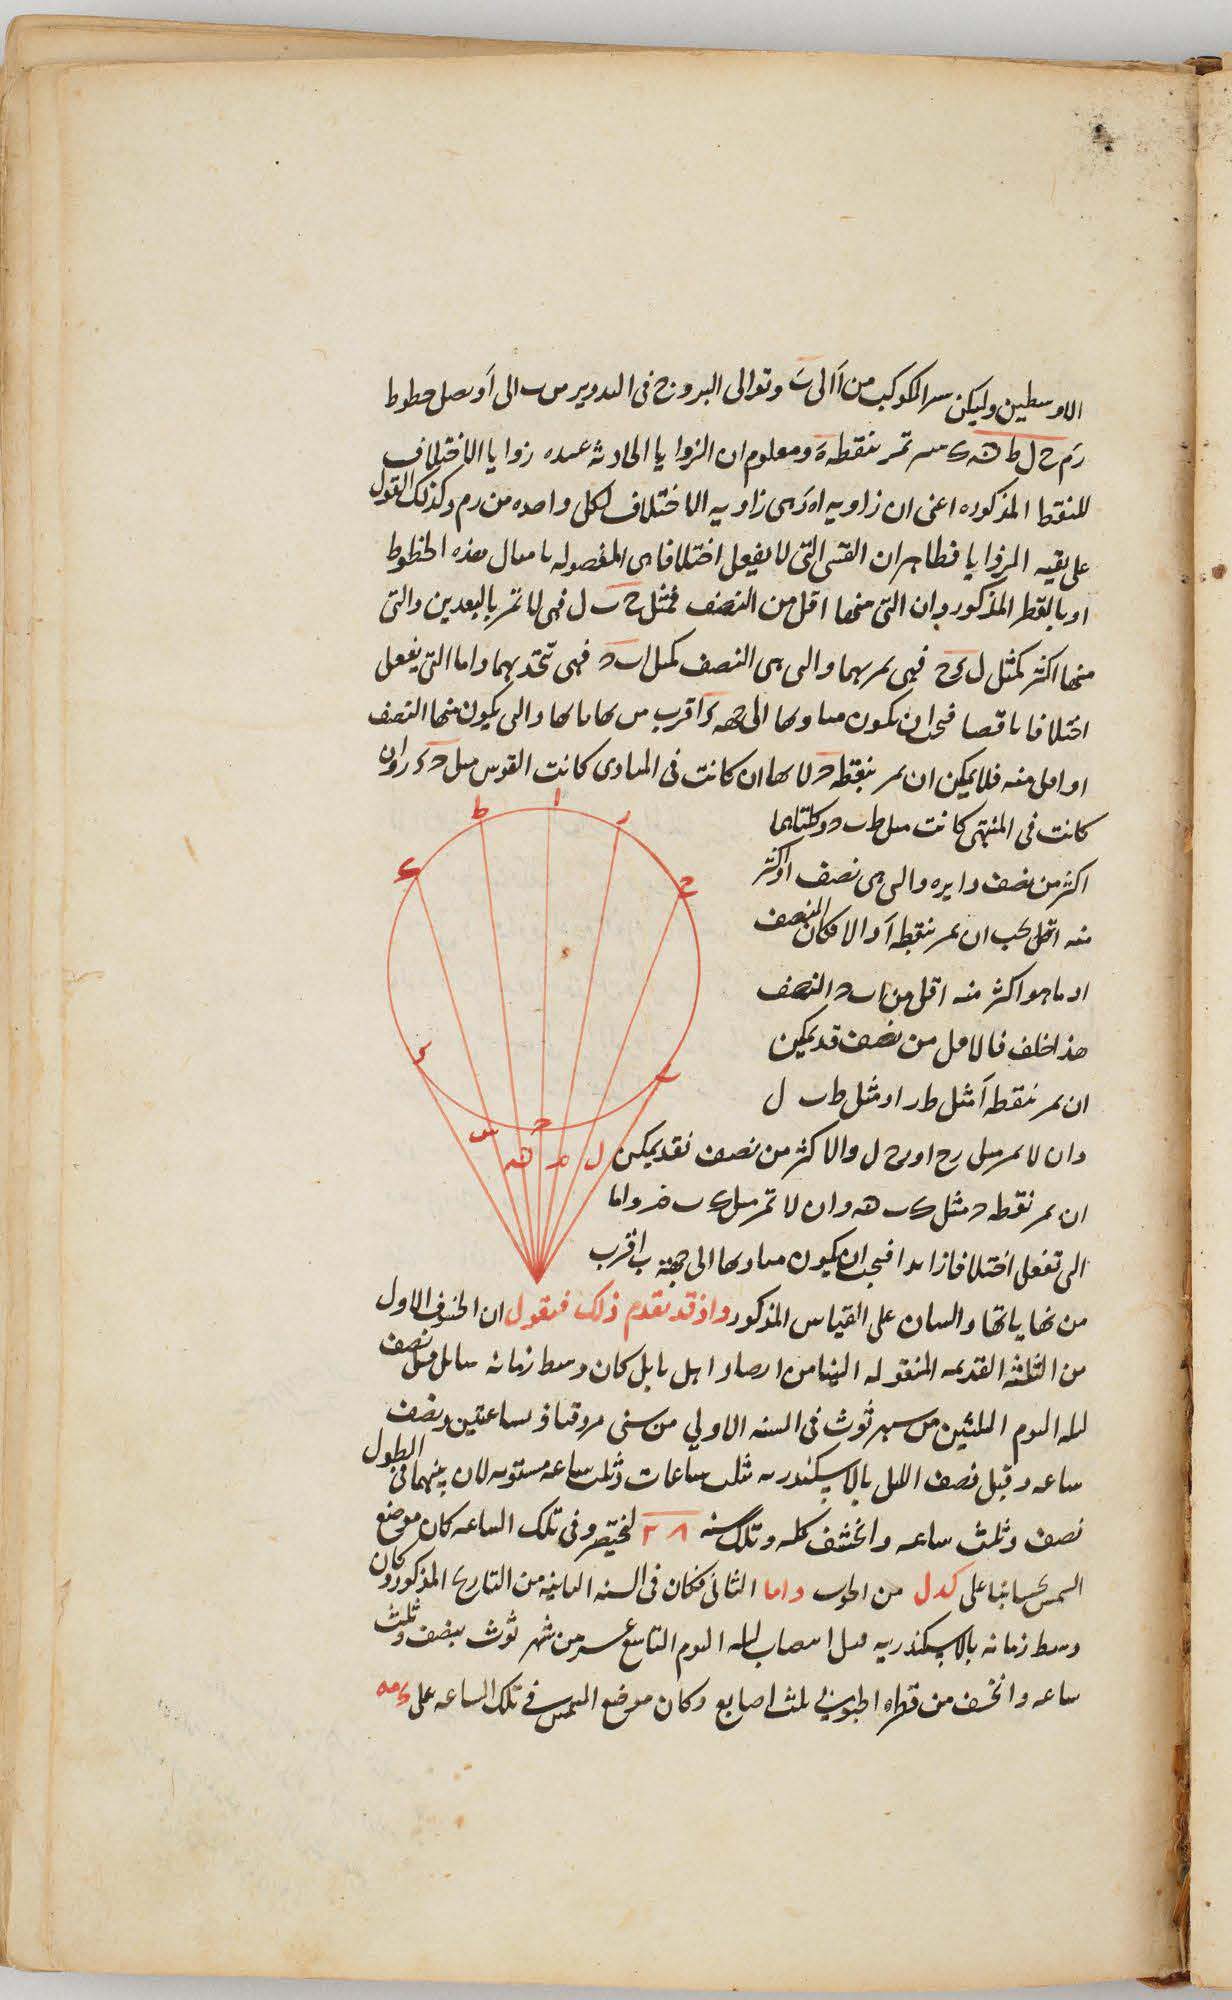 الاوسطين وليكن سر الكوكب من آ الى ب وتوالى البروج فى التدوير من ب الى آ ونصل خطوط
رم ح ل ط هـ ك س تمر بنقطة ه ومعلوم ان الزوايا الحادثه عنده زوايا الاختلاف
للنقط المذكوره اعنى ان زاويه اه ر هى زاويه الاختلاف لكل واحده من رم وكذلك القول
على بقيه الزوايا فظاهر ان القسى التى لا يفعل اختلافا هى المفصوله بامثال هذه الخطوط
او بالقطر المذكور وان التى منها اقل من النصف فمثل ح ب ل فهى لا تمر بالبعدين والتى
منها اكثر كمثل ل ى ح فهى تمر بهما والتى هى النصف كمثل ا ب د فهى تتحد بهما واما التى يفعل
اختلافا ناقصا فيجب ان يكون مباديها الى جهه ى اقرب من نهاياتها والتى يكون منها النصف
او اقل منه فلا يمكن ان تمر بنقطه د لانها ان كانت فى المبادى كانت القوس مثل د ى ر وان
كانت فى المنتهى كانت مثل ط ب د وكلتاهما
اكثر من نصف دايره والتى هى نصف او اكثر
منه اقل يجب ان تمر بنقطه آ والا فكان النصف
او ما هو اكثر منه اقل من ا ب د النصف
هذا خلف فالاقل من نصف قد يمكن
ان تمر بنقطه آ مثل ط ر او مثل ط ب ل
وان لا تمر مثل ر ح او ى ح ل والاكثر من نصف فقد يمكن
ان تمر نقطه د مثل ك ب هـ وان لا تمر مثل ك ب م واما
التى تفعل اختلافا زايدا فيجب ان يكون مباديها الى جهة ب اقرب
من نهاياتها والبيان على القياس المذكور واذ قد تقدم ذلك فنقول ان الخسوف الاول
من الثلثه القديمه المنقوله الينا من ارصاد اهل بابل كان وسط زمانه ببابل قبل نصف
ليله اليوم الثلثين من شهر ثوث فى السنه الاولى من سنى مردقناذ بساعتين ونصف
ساعه وقبل نصف الليل بالاسكندريه بثلث ساعات وثلث ساعه مستويه لان بينهما فى الطول
نصف وثلث ساعه وانخسف كله وتلك سنه ٢٨ لبختنصر وفى تلك الساعه كان موضع
الشمس بحسابنا على كدل من الحوت واما الثانى فكان فى السنه الثانيه من التاريخ المذكور وكان
وسط زمانه بالاسكندريه قبل انتصاف ليله اليوم التاسع عشر من شهر ثوث بنصف وثلث
ساعه وانخسف من قطره الجنوبى ثلث اصابع وكان موضع الشمس فى تلك الساعه على
ا
ط
ر
ك
ح
ى
ب
س
د
هـ
م
ل